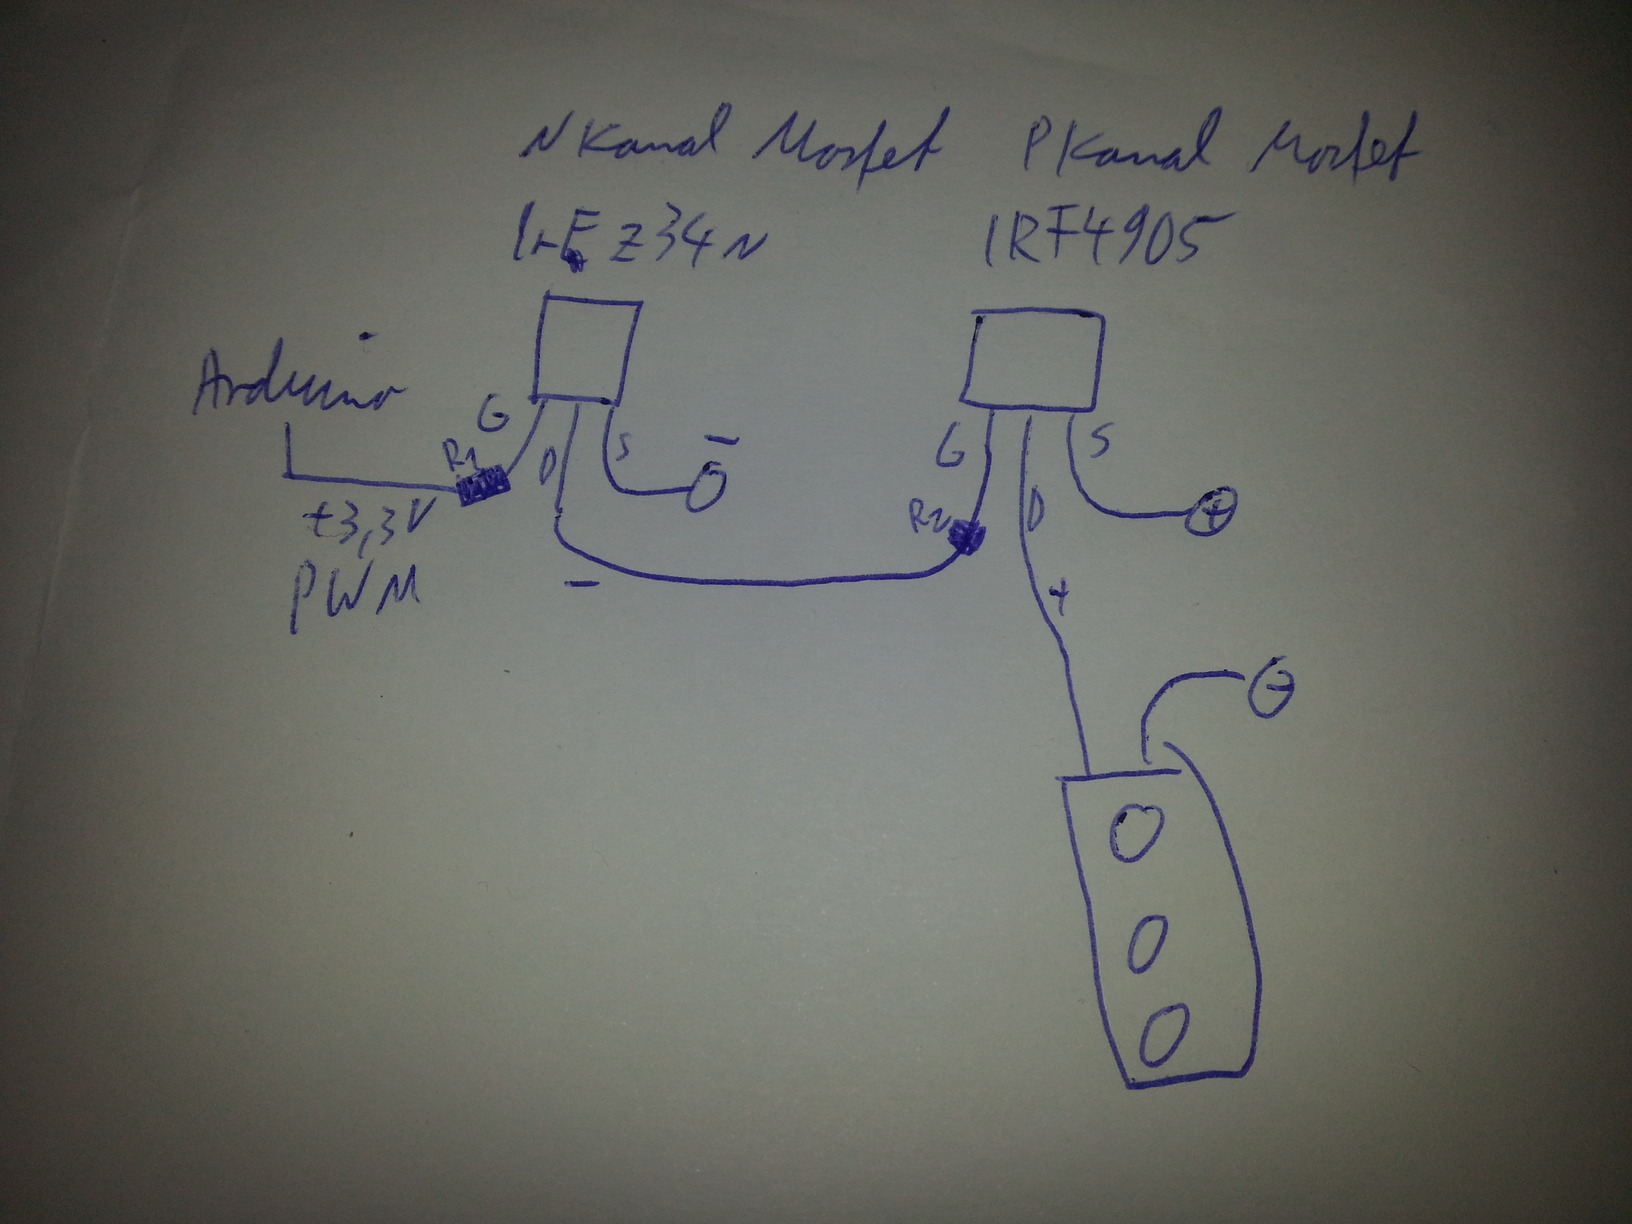 N Kanal Mosfet P Kanal Mosfet
IRFZ34N IRF4905
Arduino
G
R1
D
S
-
+3,3V
PWM
-
G
R2
D
S
+
+
-